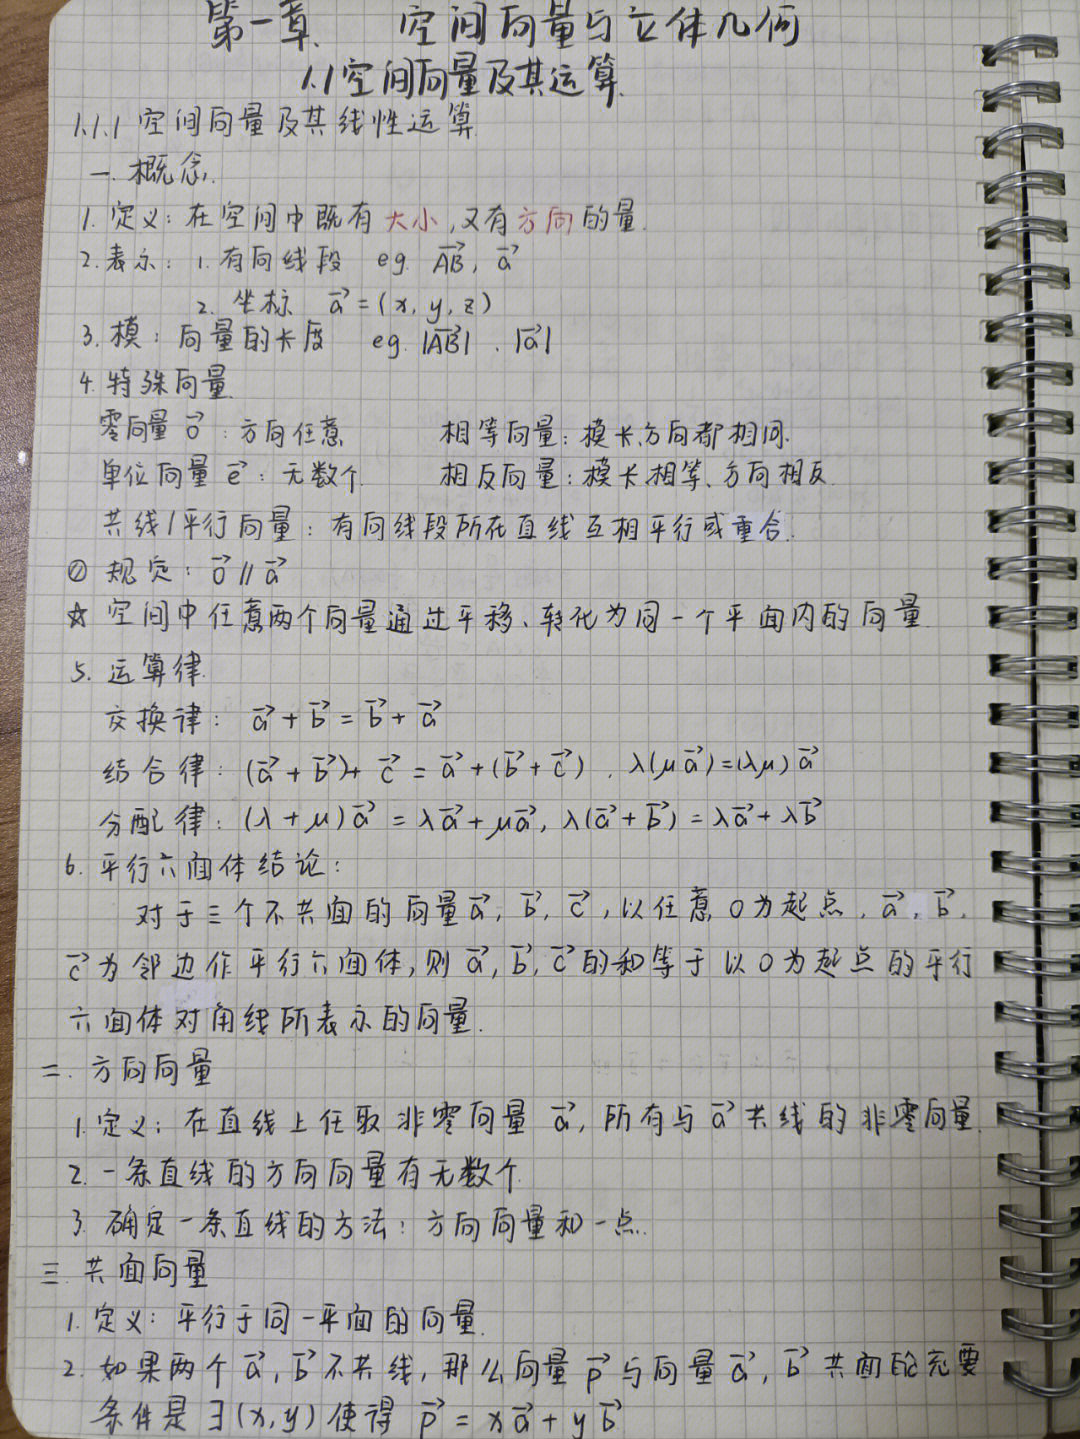 第一章. 空间向量与立体几何
1.1空间向量及其运算.
1.1.1 空间向量及其线性运算
一. 概念.
1. 定义: 在空间中既有大小,又有方向的量.
2. 表示: 1. 有向线段 eg. \vec{AB}, \vec{a}
2. 坐标 \vec{a}=(x, y, z)
3. 模: 向量的长度 eg. |\vec{AB}| . |\vec{a}|
4. 特殊向量.
零向量 \vec{0} : 方向任意 相等向量: 模长、方向都相同.
单位向量 \vec{e} : 无数个. 相反向量: 模长相等、方向相反.
共线/平行向量: 有向线段所在直线互相平行或重合.
规定: \vec{0} // \vec{a}
☆ 空间中任意两个向量通过平移、转化为同一个平面内的向量.
5. 运算律.
交换律: \vec{a} + \vec{b} = \vec{b} + \vec{a}
结合律: (\vec{a} + \vec{b})+ \vec{c} = \vec{a} + (\vec{b} + \vec{c}) . λ(μ\vec{a})=(λμ)\vec{a}
分配律: (λ + μ)\vec{a} = λ\vec{a} + μ\vec{a}, λ(\vec{a} + \vec{b}) = λ\vec{a} + λ\vec{b}
6. 平行六面体结论:
对于三个不共面的向量\vec{a}, \vec{b}, \vec{c}, 以任意O为起点, \vec{a}, \vec{b},
\vec{c}为邻边作平行六面体, 则\vec{a}, \vec{b}, \vec{c}的和等于以O为起点的平行
六面体对角线所表示的向量.
二. 方向向量
1. 定义: 在直线上任取非零向量 \vec{a}, 所有与\vec{a}共线的非零向量.
2. 一条直线的方向向量有无数个.
3. 确定一条直线的方法: 方向向量和一点.
三. 共面向量
1. 定义: 平行于同一平面的向量.
2. 如果两个\vec{a}, \vec{b}不共线, 那么向量\vec{p}与向量\vec{a}, \vec{b}共面的充要
条件是∃(x,y)使得 \vec{p} = x\vec{a} + y\vec{b}